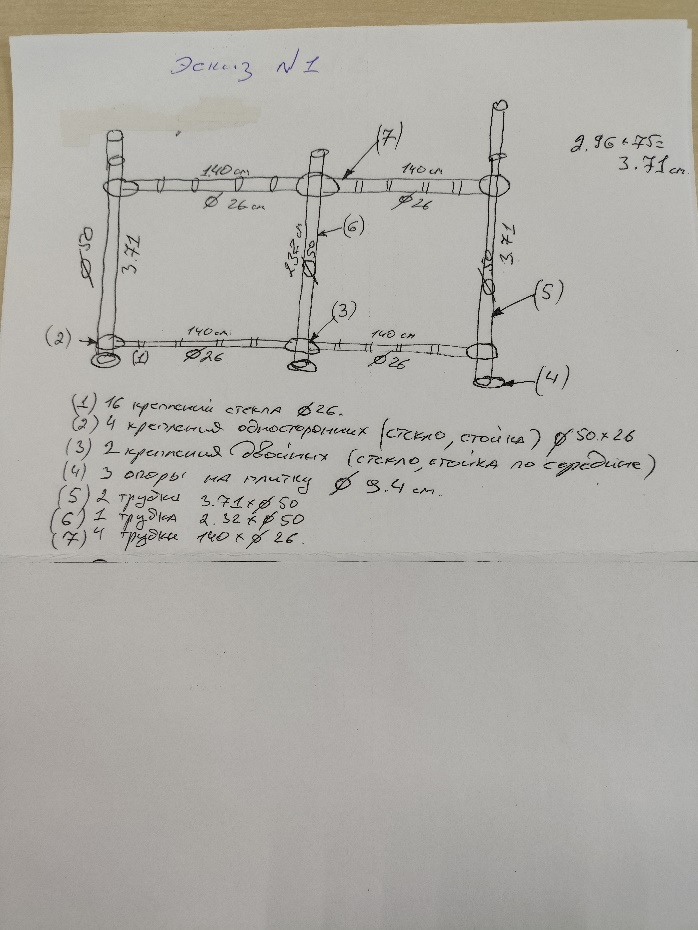 Эскиз N1
2.96+75=
3.71 см.
(7)
140 см
140 см
Ø 26 см
Ø 26
Ø 50
3.71
2.32 см
Ø 50
(6)
Ø 50
3.71
(5)
(2)
(3)
140 см.
140 см
(1)
Ø 26
Ø 26
(4)
(1) 16 креплений стекла Ø 26.
(2) 4 крепления односторонних (стекло, стойка) Ø 50 x 26
(3) 2 крепления двойных (стекло, стойка по середине)
(4) 3 опоры на плитку Ø 9.4 см.
(5) 2 трубки 3.71 x Ø 50
(6) 1 трубка 2.32 x Ø 50
(7) 4 трубки 140 x Ø 26.